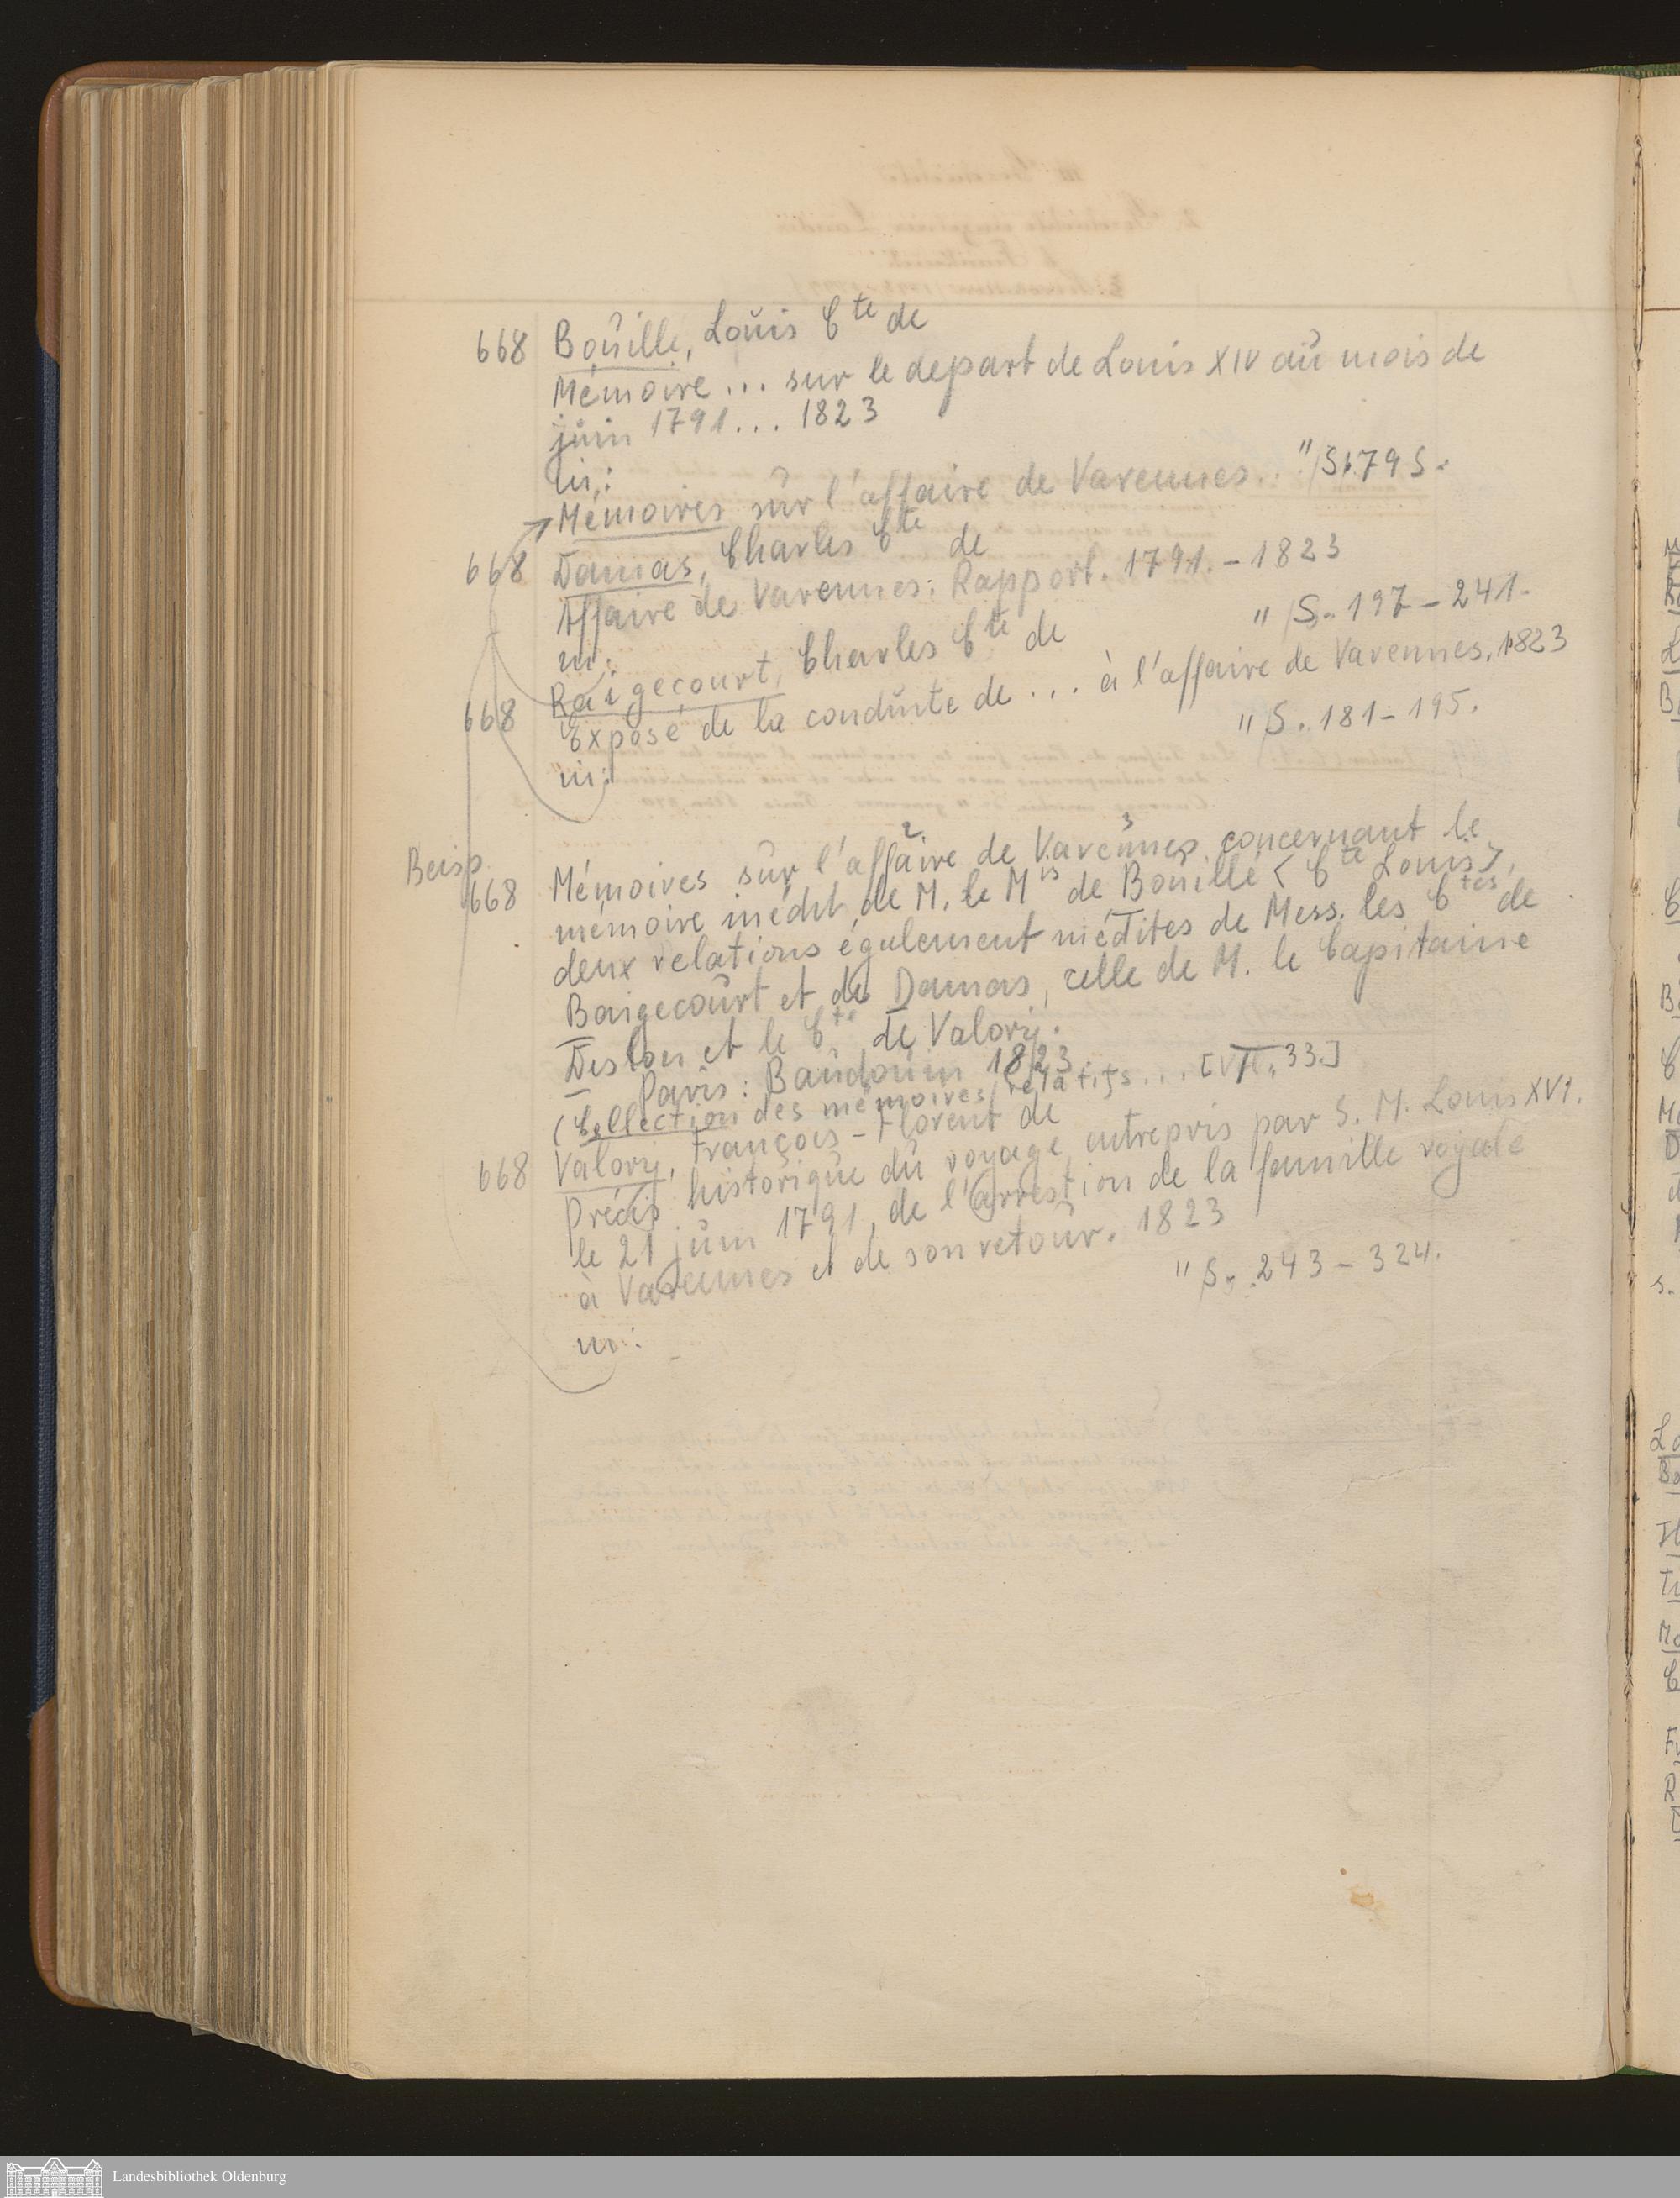 668 Boŭille, Loŭis Cte de
Mémoire ... sur le depart de Louis XIV aŭ mois de
jŭin 1791 ... 1823
in:
Mémoires sŭr l'affaire de Varennes..." S. 795.
668 Damas, Charles Cte de
Affaire de Varennes: Rapport. 1791. - 1823
in: " S. 197-241.
668 Raigecourt, Charles Cte de
Exposé de la condŭite de ... à l'affaire de Varennes. 1823
in: " S. 181-195.
Beisp.
668 Mémoires sŭr l'affaire de Varennes concernant le
mémoire inédit de M. le Mis de Boŭillé < Cte Louis>,
deux relations également inédites de Mess. les Ctes de
Baigecoŭrt et de Damas, celle de M. le Capitaine
Deslon et le Cte de Valory.
Paris: Baŭdoŭin 1823
(Collection des mémoires relatifs ... [VII, 33.]
668 Valory, François-Florent de
Précis historiqŭe dŭ voyage entrepris par S. M. Louis XVI.
le 21 jŭin 1791, de l'arrestion de la famille royale
à Varennes et de son retoŭr. 1823
in: " S. 243-324.
Landesbibliothek Oldenburg